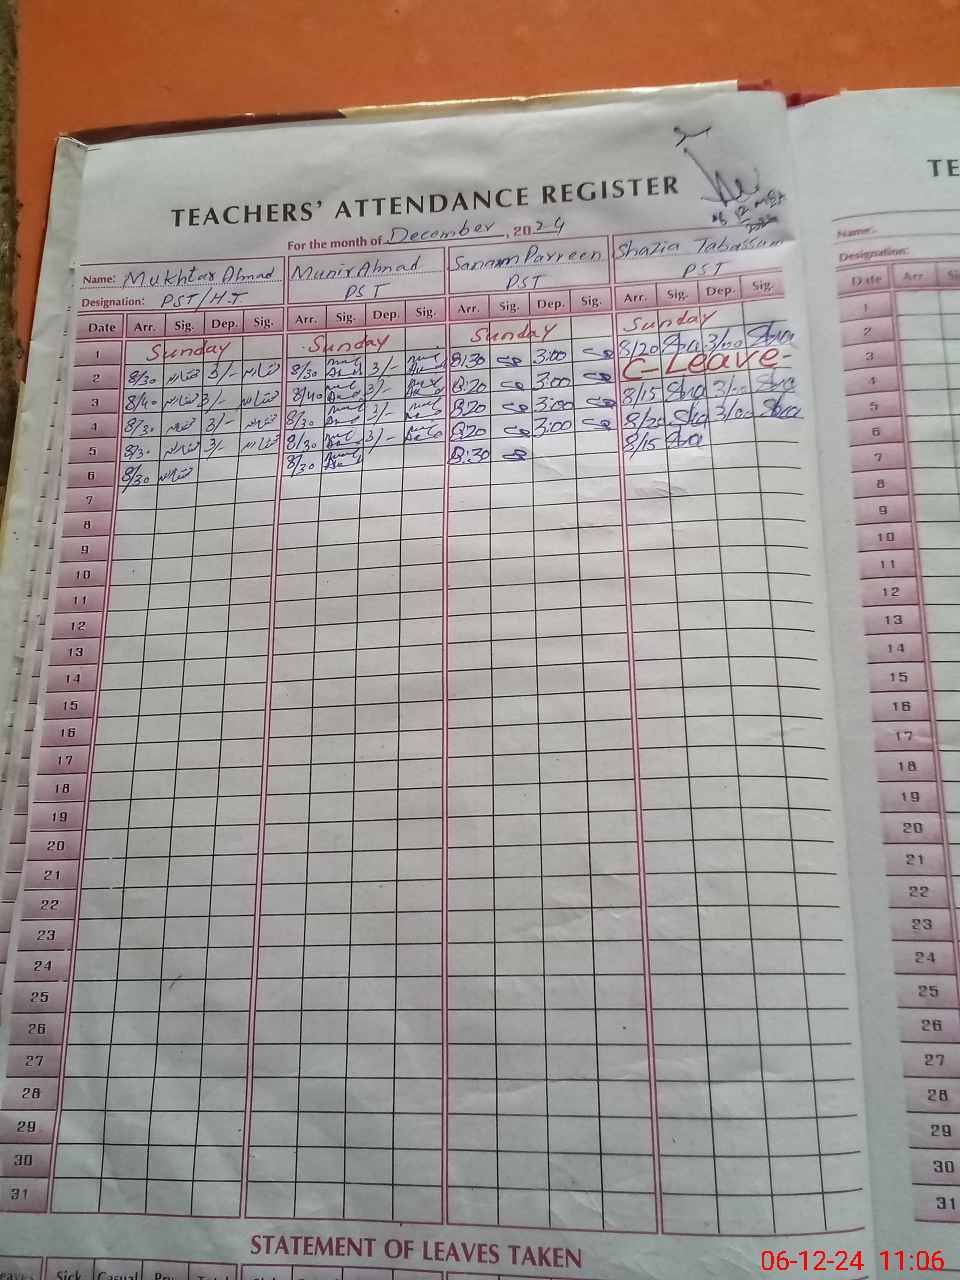 TEACHERS' ATTENDANCE REGISTER
TE
For the month of December, 2024
Name: Mukhtar Ahmad Munir Ahmad Sanam Parveen Shazia Tabassum
Name:
Designation: PST/H.T PST PST PST
Designation:
Date Arr. Sig. Dep. Sig. Arr. Sig. Dep. Sig. Arr. Sig. Dep. Sig. Arr. Sig. Dep. Sig.
Date Arr. Si
1 Sunday Sunday Sunday Sunday
2 8/30 3/- 8/30 3/- 8:30 3:00 8/20 3/00
3 8/40 3/- 8/40 3/- 8:20 3:00 C-Leave-
4 8/30 3/- 8/30 3/- 8:20 3:00 8/15 3/00
5 8/30 3/- 8/30 3/- 8:20 3:00 8/20 3/00
6 8/30 8/30 8:30 8/15
7
8
9
10
11
12
13
14
15
16
17
18
19
20
21
22
23
24
25
26
27
28
29
30
31
1
2
3
4
5
6
7
8
9
10
11
12
13
14
15
16
17
18
19
20
21
22
23
24
25
26
27
28
29
30
31
STATEMENT OF LEAVES TAKEN
Sick Casual
06-12-24 11:06